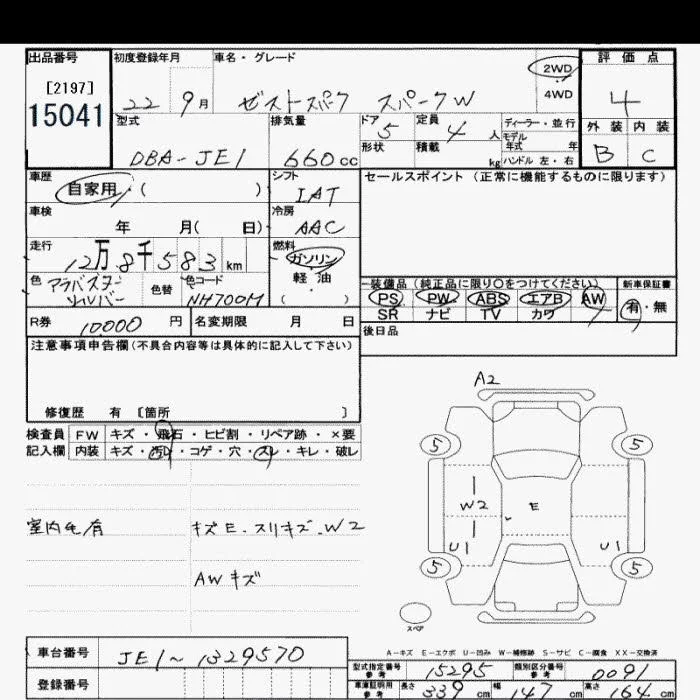 出品番号 初度登録年月 車名・グレード 2WD 評価点
[2197] 22 9月 ゼストスパーク スパークW 4WD 4
15041 型式 排気量 ドア 5 定員 4人 ディーラー・並行 外装 内装
モデル
年式 年
DBA-JE1 660cc 形状 積載 kg ハンドル 左・右 B C
車歴 自家用・( ) シフト IAT セールスポイント (正常に機能するものに限ります)
車検 年 月( 日) 冷房 AAC
走行 12万8千583km 燃料 ガソリン
軽・油
( )
色 アラバスター シルバー 色替 色コード NH700M
装備品 (純正品に限り○をつけてください) 新車保証書
PS PW ABS エアB AW 有・無
SR ナビ TV カワ
R券 10,000円 名変期限 月 日 後日品
注意事項申告欄(不具合内容等は具体的に記入して下さい)
修復歴 有 〔箇所 〕
検査員 FW キズ・飛石・ヒビ割・リペア跡・×要
記入欄 内装 キズ・汚レ・コゲ・穴・スレ・キレ・破レ
室内毛有 キズE.スリキズ.W2
AWキズ
A2
5 5
W2 E
U1 U1
5 5
スペア
A-キズ E-エクボ U-凹み W-補修跡 S-サビ C-腐食 XX-交換済
車台番号 JE1~1329570
型式指定番号 参考 15295 類別区分番号 参考 0091
登録番号
車庫証明用 参考 長さ 339cm 幅 147cm 高さ 164cm